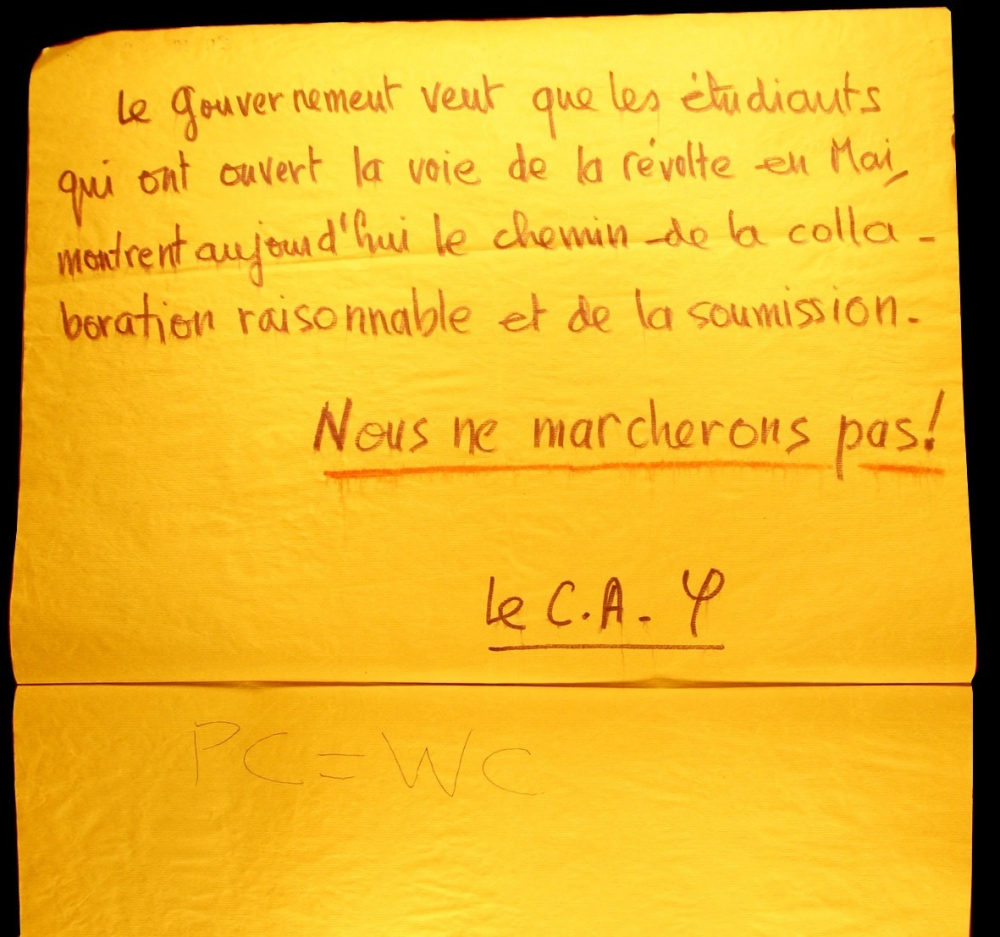 Le Gouvernement veut que les étudiants
qui ont ouvert la voie de la révolte en Mai,
montrent aujourd'hui le chemin de la colla-
boration raisonnable et de la soumission.
Nous ne marcherons pas!
Le C.A. φ
PC=WC